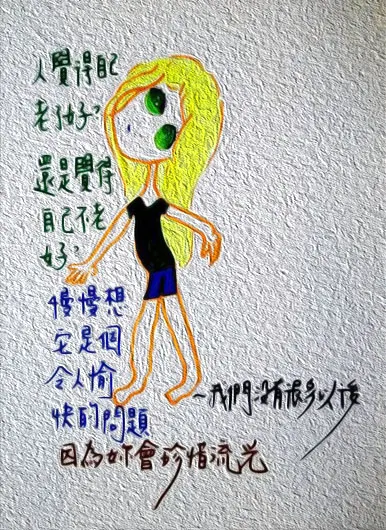 人覺得自己
老了好？
還是覺得
自己不老
好？
慢慢想
它是個
令人愉
快的問題
～我們沒有很多以後
因為妳會珍惜流光